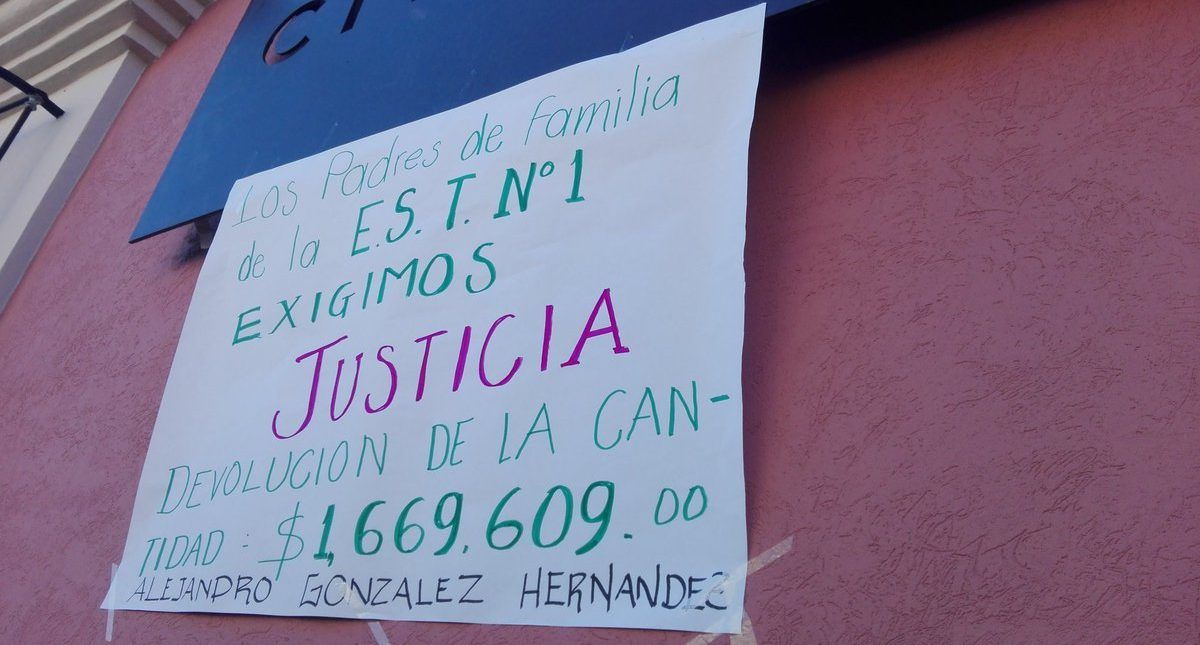 Los Padres de Familia
de la E.S.T. N° 1
EXIGIMOS
JUSTICIA
DEVOLUCION DE LA CAN-
TIDAD : $1,669,609.00
ALEJANDRO GONZALEZ HERNANDEZ